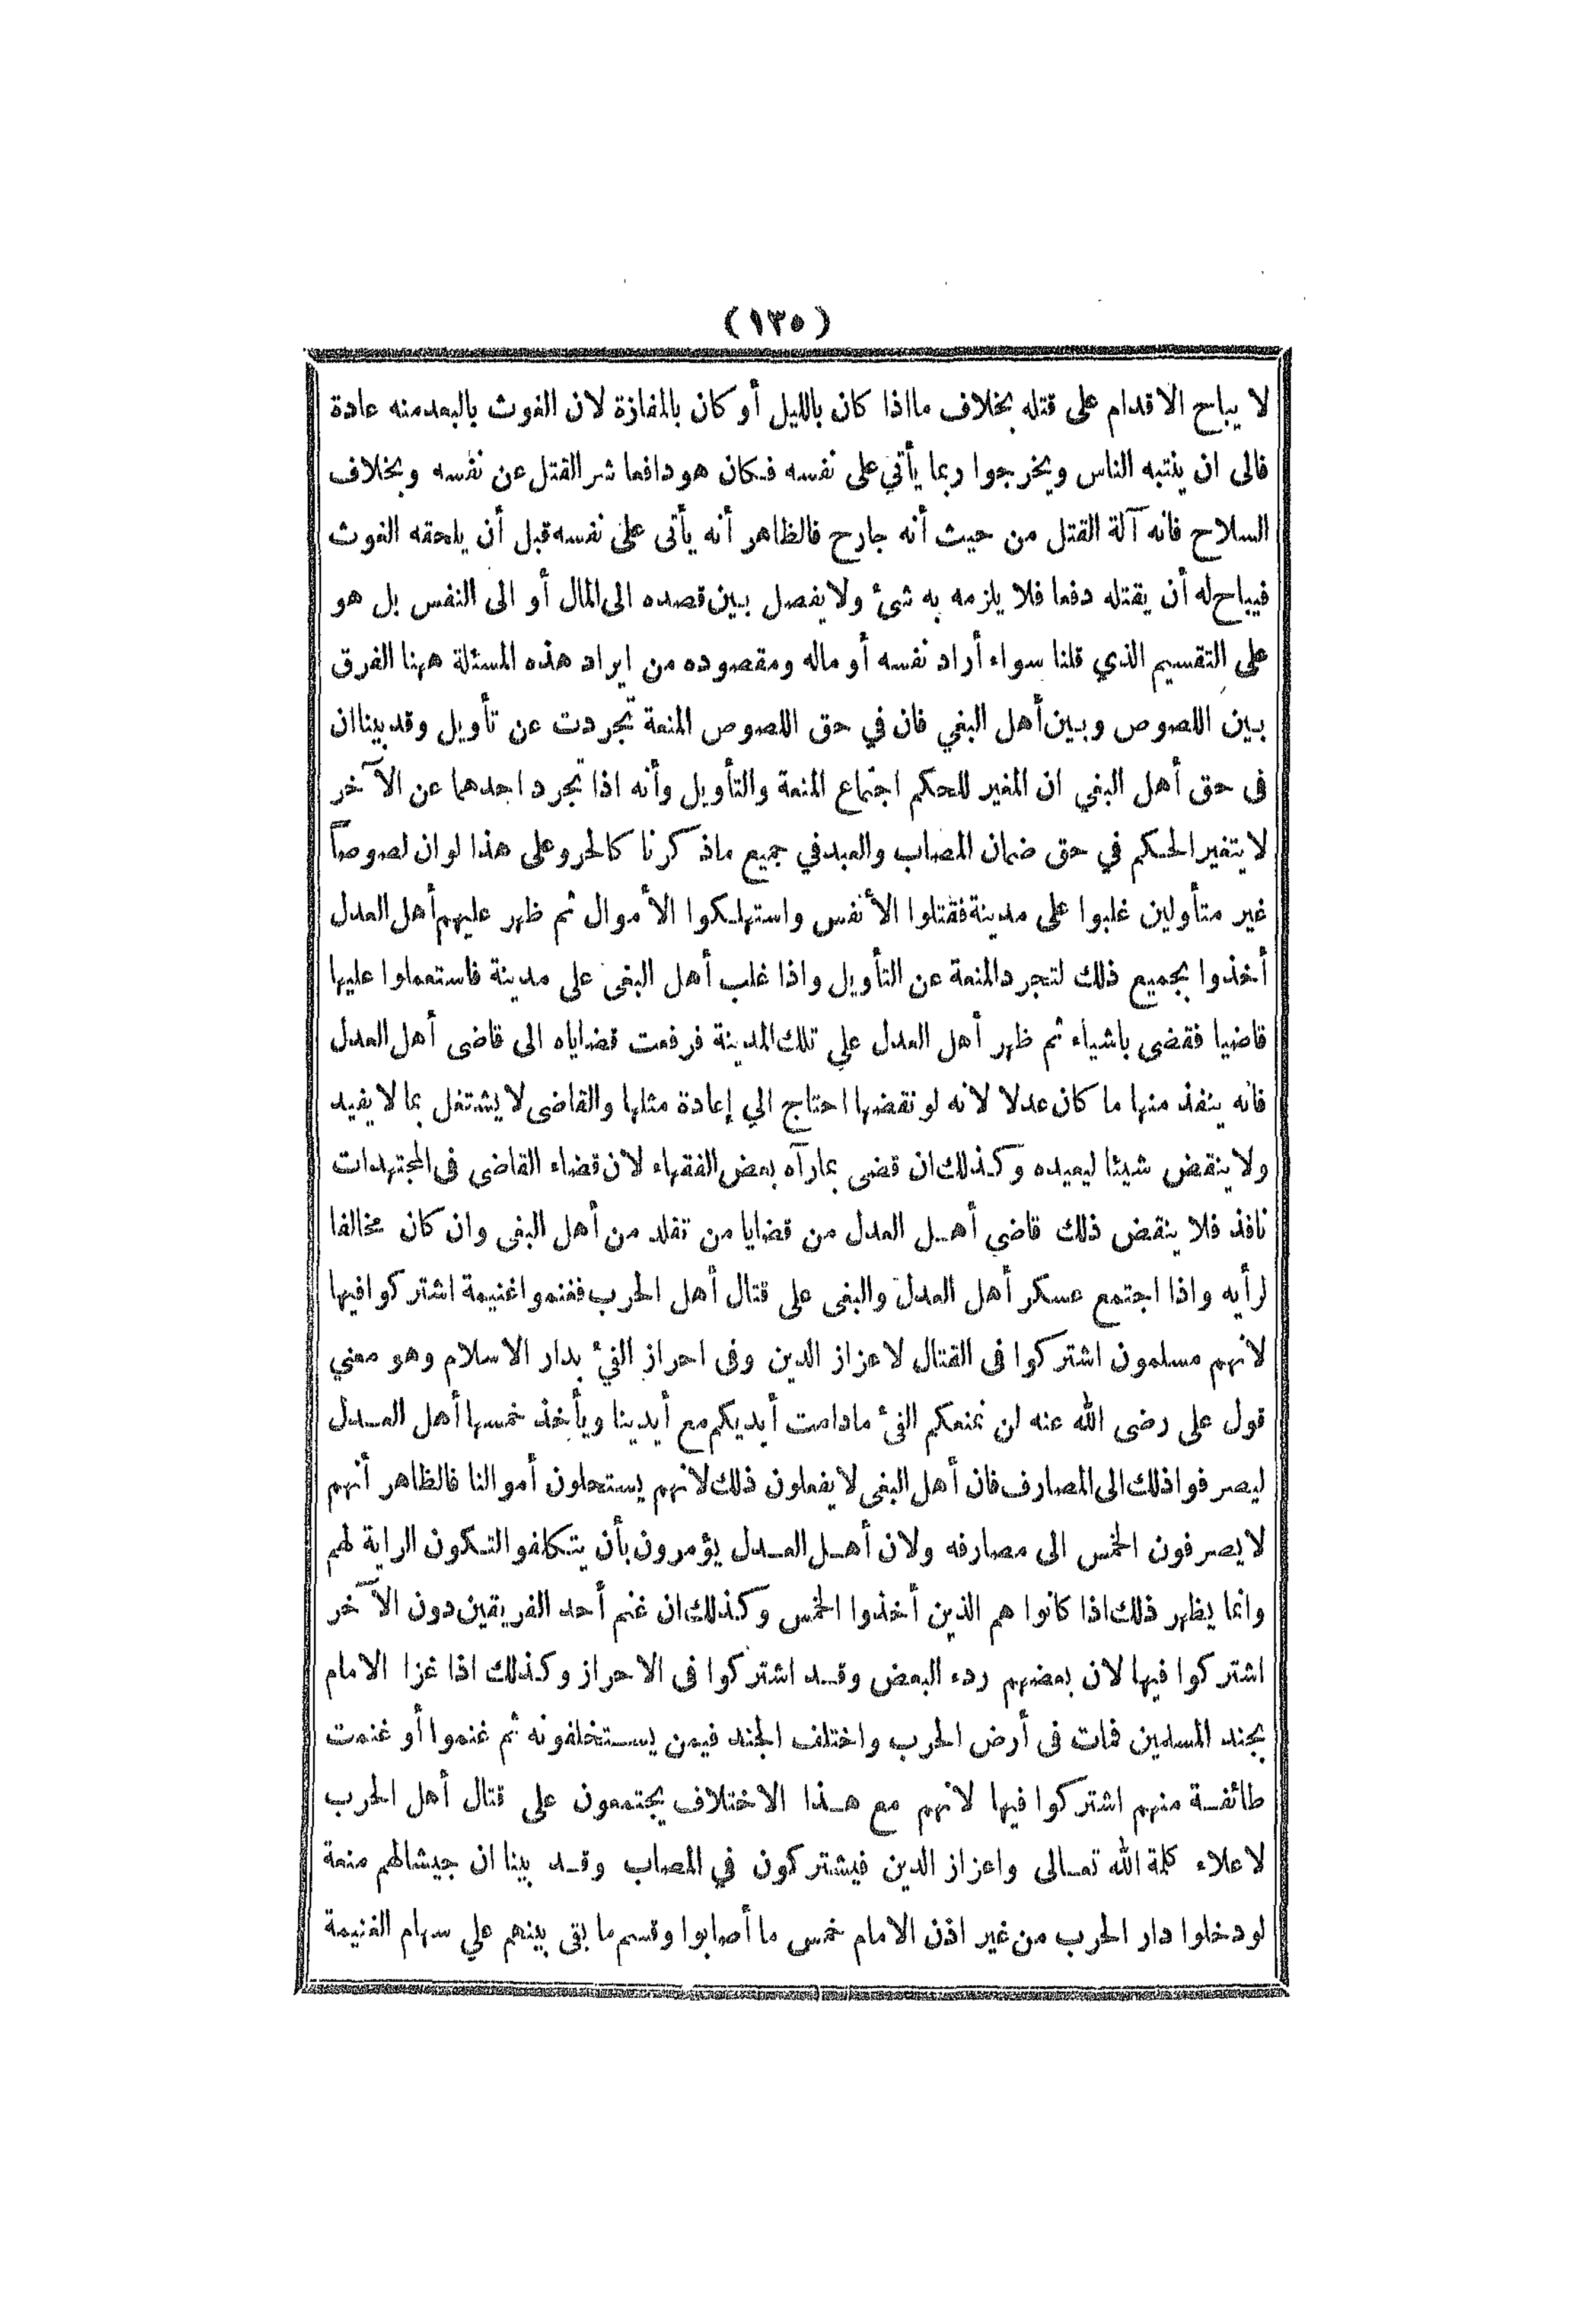 (١٣٥)
لا يباح الاقدام على قتله بخلاف مااذا كان بالليل أو كان بالمفازة لان الغوث بالبعدمنه عادة
فالى ان ينتبه الناس ويخرجوا ربما يأتي على نفسه فكان هو دافعا شر القتل عن نفسه وبخلاف
السلاح فانه آلة القتل من حيث أنه جارح فالظاهر أنه يأتى على نفسه قبل أن يلحقه الغوث
فيباح له أن يقتله دفعا فلا يلزمه به شئ ولا يفصل بين قصده الى المال أو الى النفس بل هو
على التقسيم الذي قلنا سواء أراد نفسه أو ماله ومقصوده من ايراد هذه المسئلة ههنا الفرق
بين اللصوص وبين أهل البغي فان في حق اللصوص المنعة تجردت عن تأويل وقد بيناان
فى حق أهل البغي ان المغير للحكم اجتماع المنعة والتأويل وأنه اذا تجرد احدهما عن الآخر
لا يتغير الحكم في حق ضمان المصاب والعبد في جميع ماذكرنا كالحر وعلى هذا لو ان لصوصاً
غير متأولين غلبوا على مدينة فقتلوا الأنفس واستهلكوا الأموال ثم ظهر عليهم أهل العدل
أخذوا بجميع ذلك لتجرد المنعة عن التأويل واذا غلب أهل البغى على مدينة فاستعملوا عليها
قاضيا فقضى باشياء ثم ظهر أهل العدل علي تلك المدينة فرفعت قضاياه الى قاضى أهل العدل
فانه ينفذ منها ما كان عدلا لانه لو نقضها احتاج الي إعادة مثلها والقاضى لا يشتغل بما لا يفيد
ولا ينقض شيئا ليعيده وكذلك ان قضى بما رآه بعض الفقهاء لان قضاء القاضى فى المجتهدات
نافذ فلا ينقض ذلك قاضي أهل العدل من قضايا من تقلد من أهل البغى وان كان مخالفا
لرأيه واذا اجتمع عسكر أهل العدل والبغى على قتال أهل الحرب فغنموا غنيمة اشتركوا فيها
لانهم مسلمون اشتركوا فى القتال لاعزاز الدين وفى احراز الفئ بدار الاسلام وهو معني
قول على رضى الله عنه لن نمنعكم الفئ مادامت أيديكم مع أيدينا ويأخذ خمسها أهل العدل
ليصرفوا ذلك الى المصارف فان أهل البغى لا يفعلون ذلك لانهم يستحلون أموالنا فالظاهر أنهم
لا يصرفون الخمس الى مصارفه ولان أهل العدل يؤمرون بأن يتكلفوا لتكون الراية لهم
وانما يظهر ذلك اذا كانوا هم الذين أخذوا الخمس وكذلك ان غنم أحد الفريقين دون الآخر
اشتركوا فيها لان بعضهم ردء البعض وقد اشتركوا فى الاحراز وكذلك اذا غزا الامام
بجند المسلمين فمات فى أرض الحرب واختلف الجند فيمن يستخلفونه ثم غنموا أو غنمت
طائفة منهم اشتركوا فيها لانهم مع هذا الاختلاف يجتمعون على قتال أهل الحرب
لاعلاء كلمة الله تعالى واعزاز الدين فيشتركون في المصاب وقد بينا ان جيشا لهم منعة
لودخلوا دار الحرب من غير اذن الامام خمس ما أصابوا وقسم ما بقى بينهم علي سهام الغنيمة